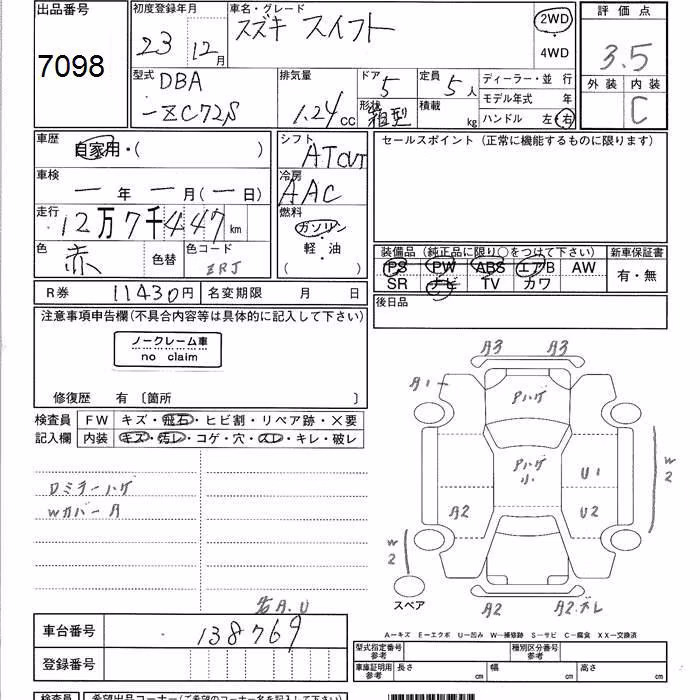 出品番号
7098
初度登録年月
23年12月
車名・グレード
スズキ スイフト
2WD
・
4WD
評価点
3.5
外装 内装
C
型式
DBA
-ZC72S
排気量
1.24 cc
ドア 5
形状 箱型
定員 5人
積載 kg
ディーラー・並行
モデル年式 年
ハンドル 左・右
車歴
自家用・( )
車検
一年一月(一日)
走行
12万7千447km
色
赤
色替
色コード
ZRJ
シフト
ATCVT
冷房
AAC
燃料
ガソリン
・
軽・油
( )
セールスポイント(正常に機能するものに限ります)
装備品(純正品に限り○をつけて下さい)
PS PW ABS エアB AW
SR ナビ TV カワ
新車保証書
有・無
後日品
R券 11430円
名変期限 月 日
注意事項申告欄(不具合内容等は具体的に記入して下さい)
ノークレーム車
no claim
修復歴 有〔箇所 〕
検査員
記入欄
FW キズ・飛石・ヒビ割・リペア跡・X要
内装 キズ・汚レ・コゲ・穴・スレ・キレ・破レ
ロミラーハゲ
Wカバー A
A3 A3
A1
Pハゲ
Pハゲ
小
U1
A2
U2
W
2
W
2
スペア
A2
A2.ズレ
A.U
車台番号 138769
登録番号
A-キズ E-エクボ U-凹み W-補修跡 S-サビ C-腐食 XX-交換済
型式指定番号
参考
種別区分番号
参考
車庫証明用
参考
長さ cm
幅 cm
高さ cm
検査員
希望出品コーナー(ご希望のコーナー名を記入して下さい)